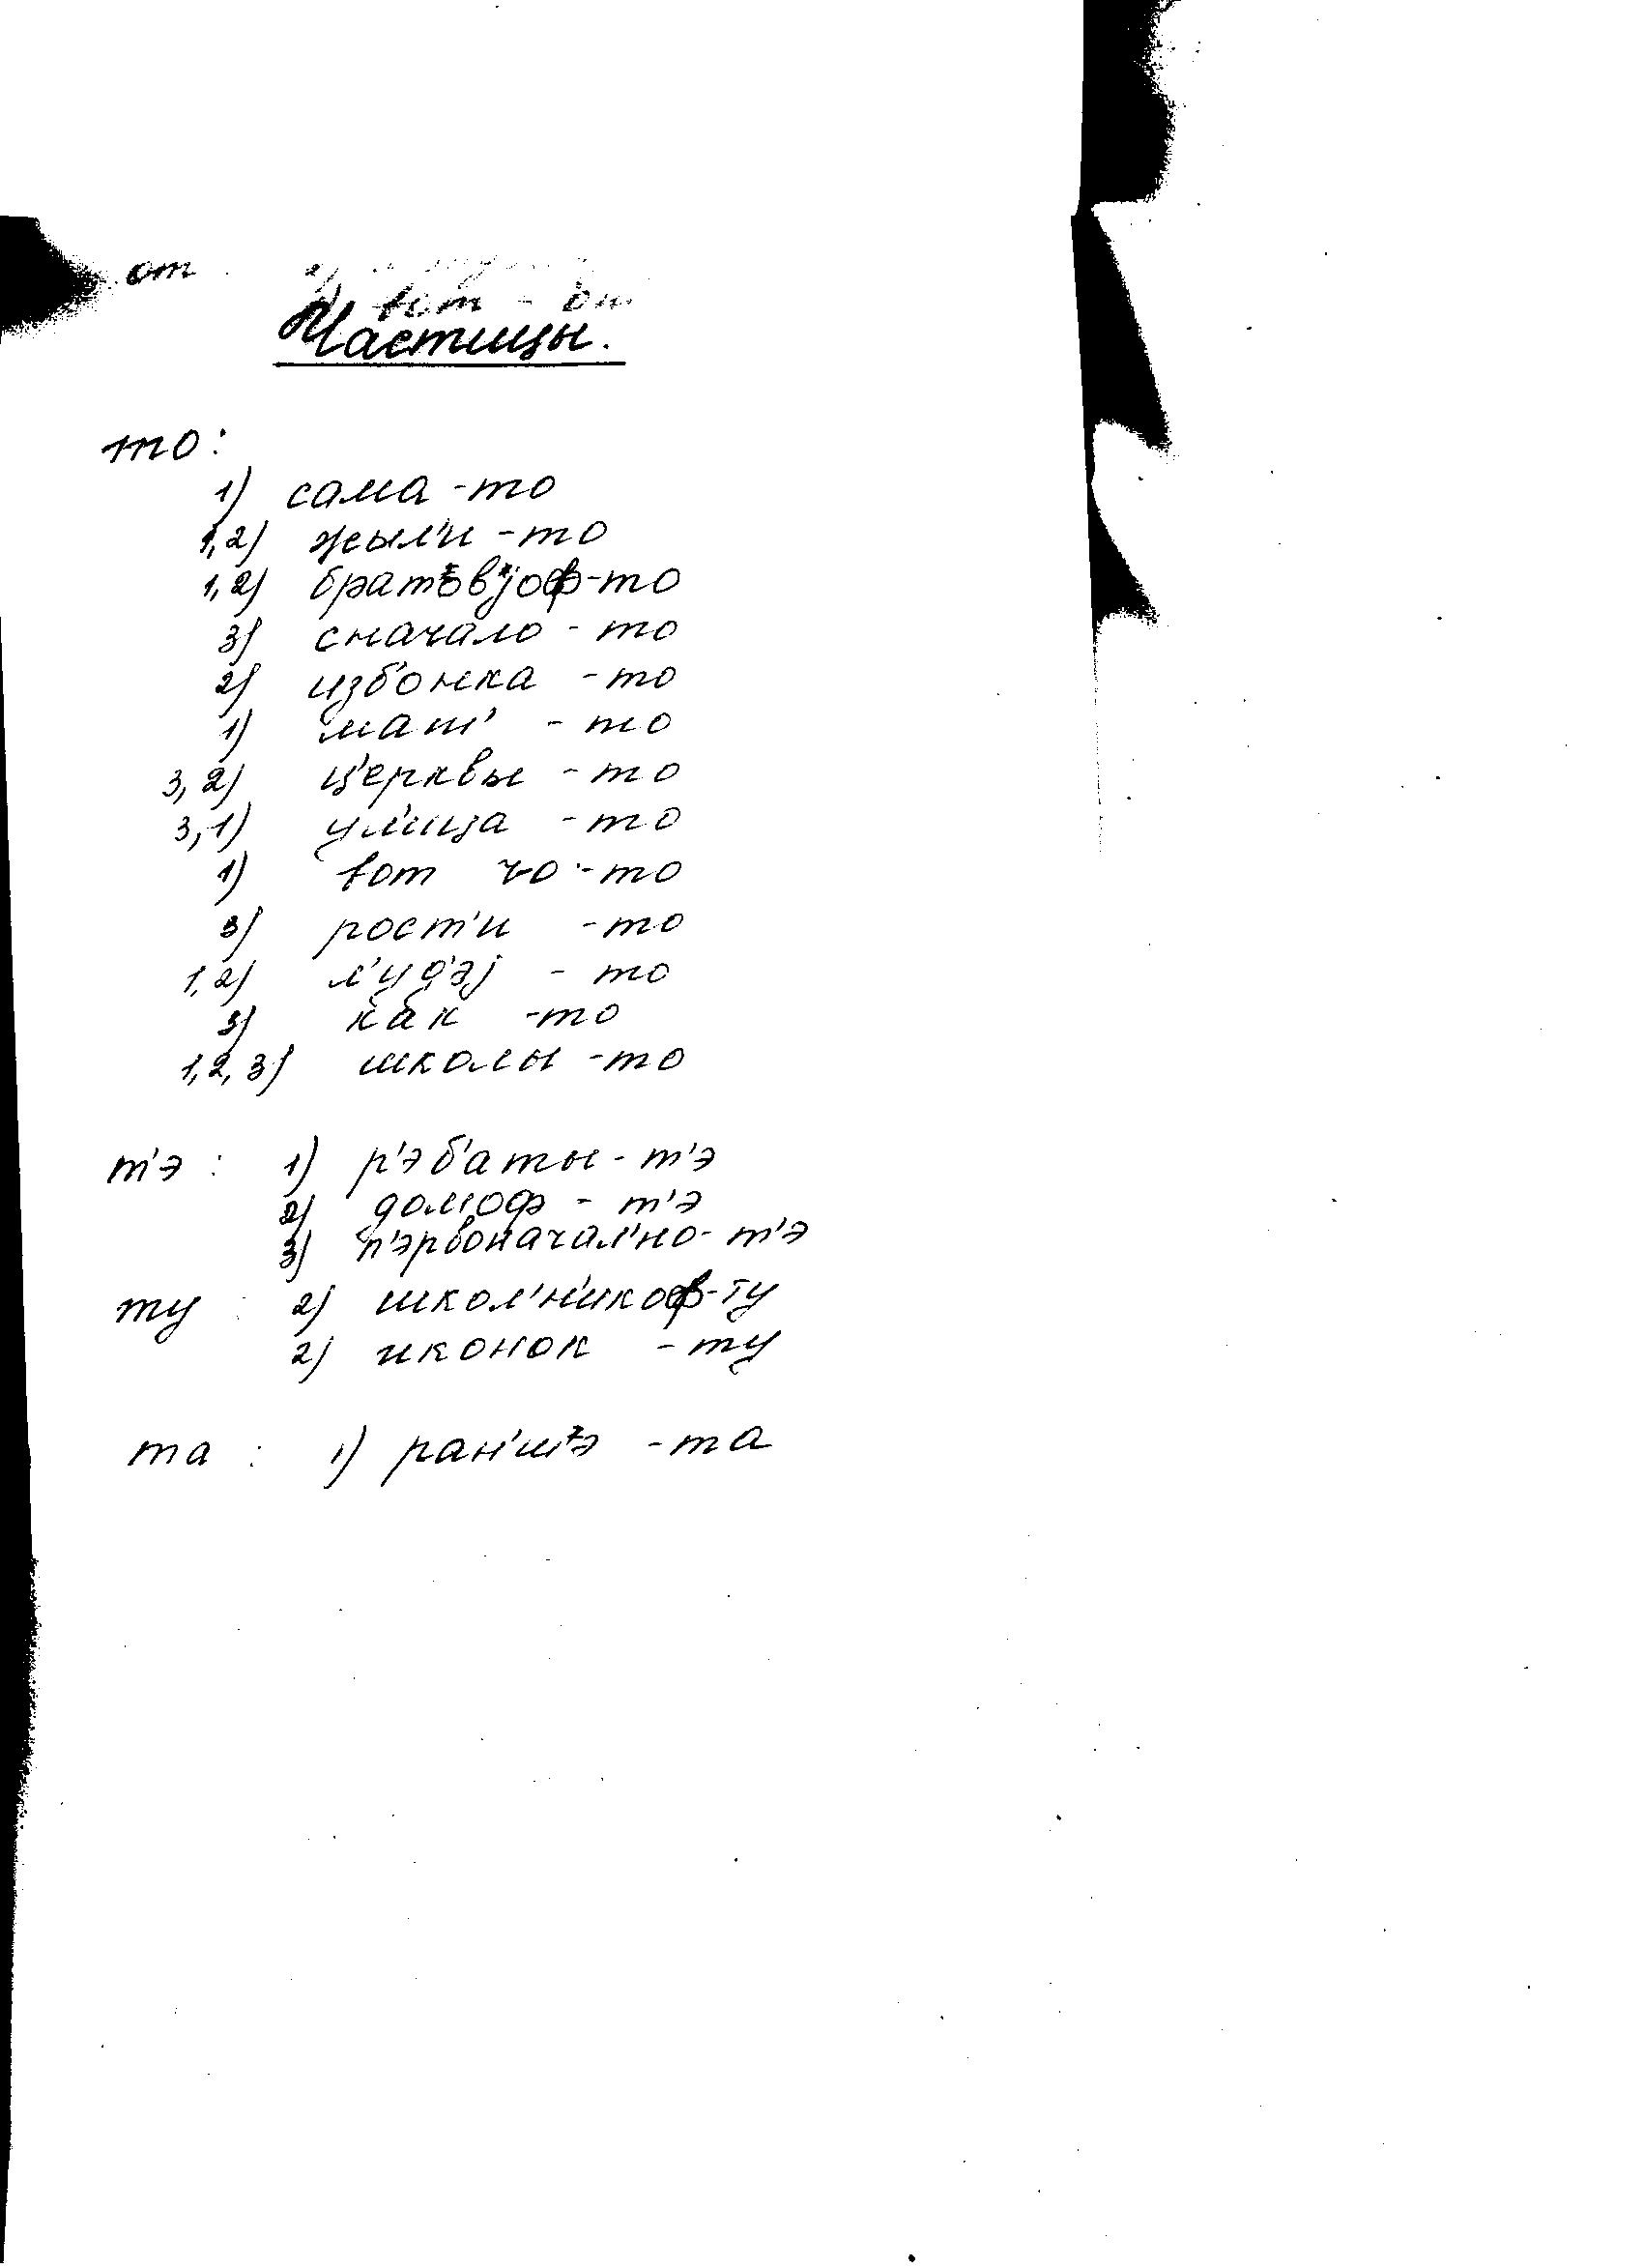 от
вот - от
Частицы.
то:
1) сама-то
1,2) жыл'и-то
1,2) братов'jоф-то
3) сначало-то
2) изб'онка-то
1) мат' - то
3,2) ц'ерквы-то
3,1) ул'ица-то
1) вот чо-то
3) рост'и-то
1,2) л'уд'эj - то
3) как-то
1,2,3) школы-то
т'э: 1) р'эб'аты-т'э
2) домоф - т'э
3) п'эрвоначал'но-т'э
ту: 2) школ'н'икоф-ту
2) иконок-ту
та: 1) ран'шэ-та